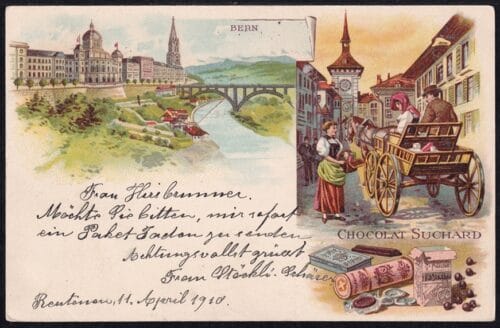 BERN
CHOCOLAT SUCHARD
Frau Heribrunner.
Möchte Sie bitten, mir sofort
ein Paket Faden zu senden
Achtungsvollst grüsst
Frau Stöckli-Schärer
11. April 1910.